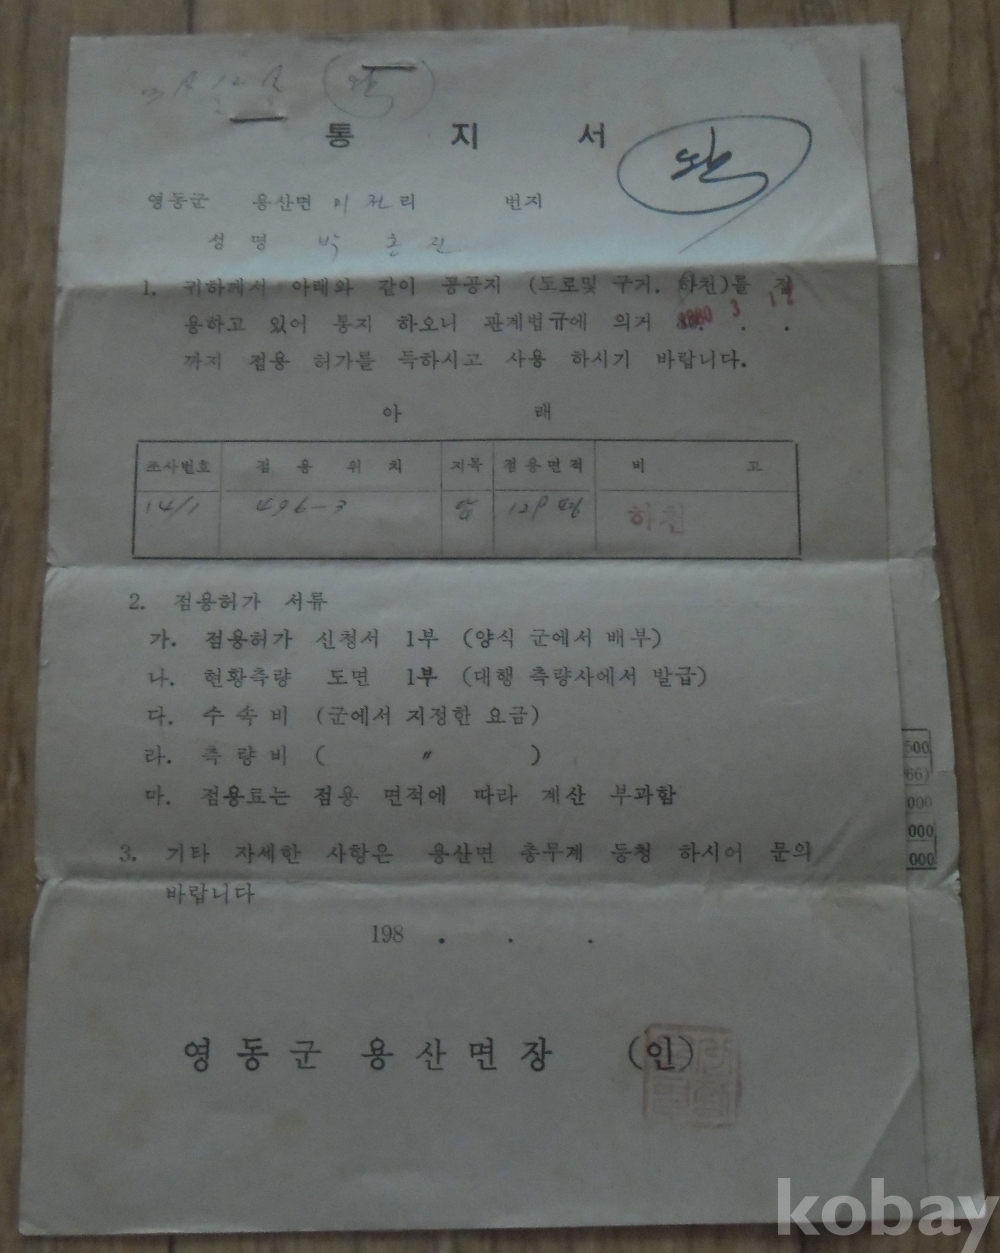 통 지 서
완
영동군 용산면 리 번지
성 명 박
1. 귀하께서 아래와 같이 공공지 (도로및 구거. 하천)를 점
용하고 있어 통지 하오니 관계법규에 의거 3
까지 점용 허가를 득하시고 사용 하시기 바랍니다.
아 래
조사번호 점 용 위 치 지목 점용면적 비 고
14/1 496-3 답 129평 하천
2. 점용허가 서류
가. 점용허가 신청서 1부 (양식 군에서 배부)
나. 현황측량 도면 1부 (대행 측량사에서 발급)
다. 수 속 비 (군에서 지정한 요금)
라. 측 량 비 ( 〃 )
마. 점용료는 점용 면적에 따라 계산 부과함
3. 기타 자세한 사항은 용산면 총무계 등청 하시어 문의
바랍니다
198 . . .
영동군 용산면장 (인)
500
66)
000
000
000
kobay